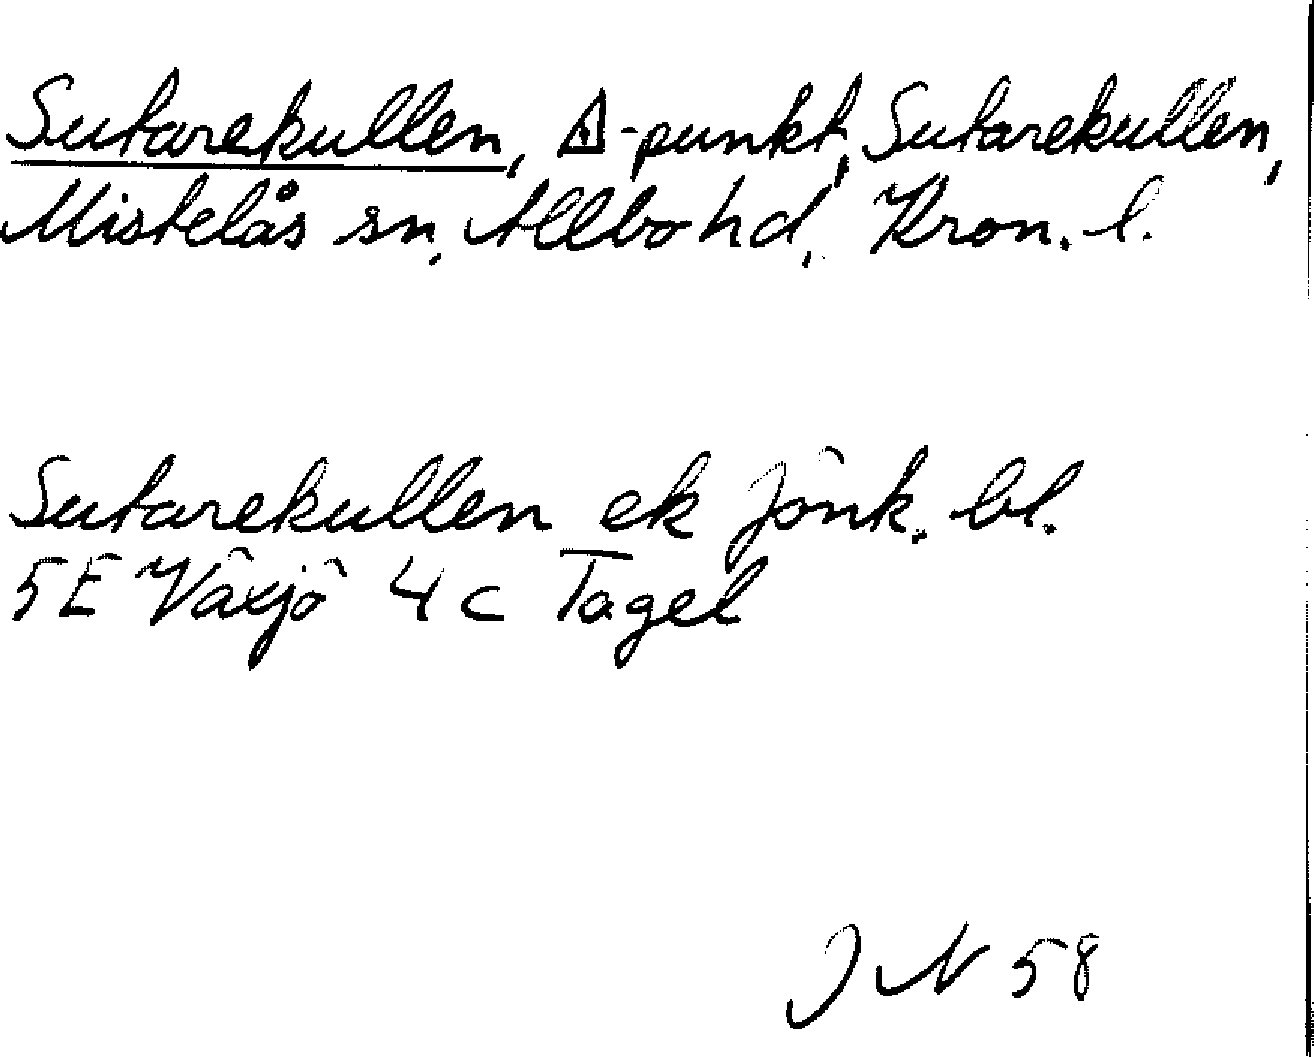 Sutarekullen, △-punkt, Sutarekullen,
Mistelås sn, Allbo hd, Kron. l.
Sutarekullen ek Jönk. bl.
5E Växjö 4c Tagel
J N 58